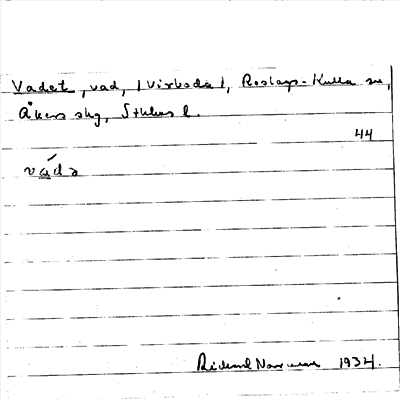 Vadet, vad, (Virboda), Roslags-Kulla sn,
Åkers skg, Sthlms l.
44
váda
Rickard Norrman 1934.